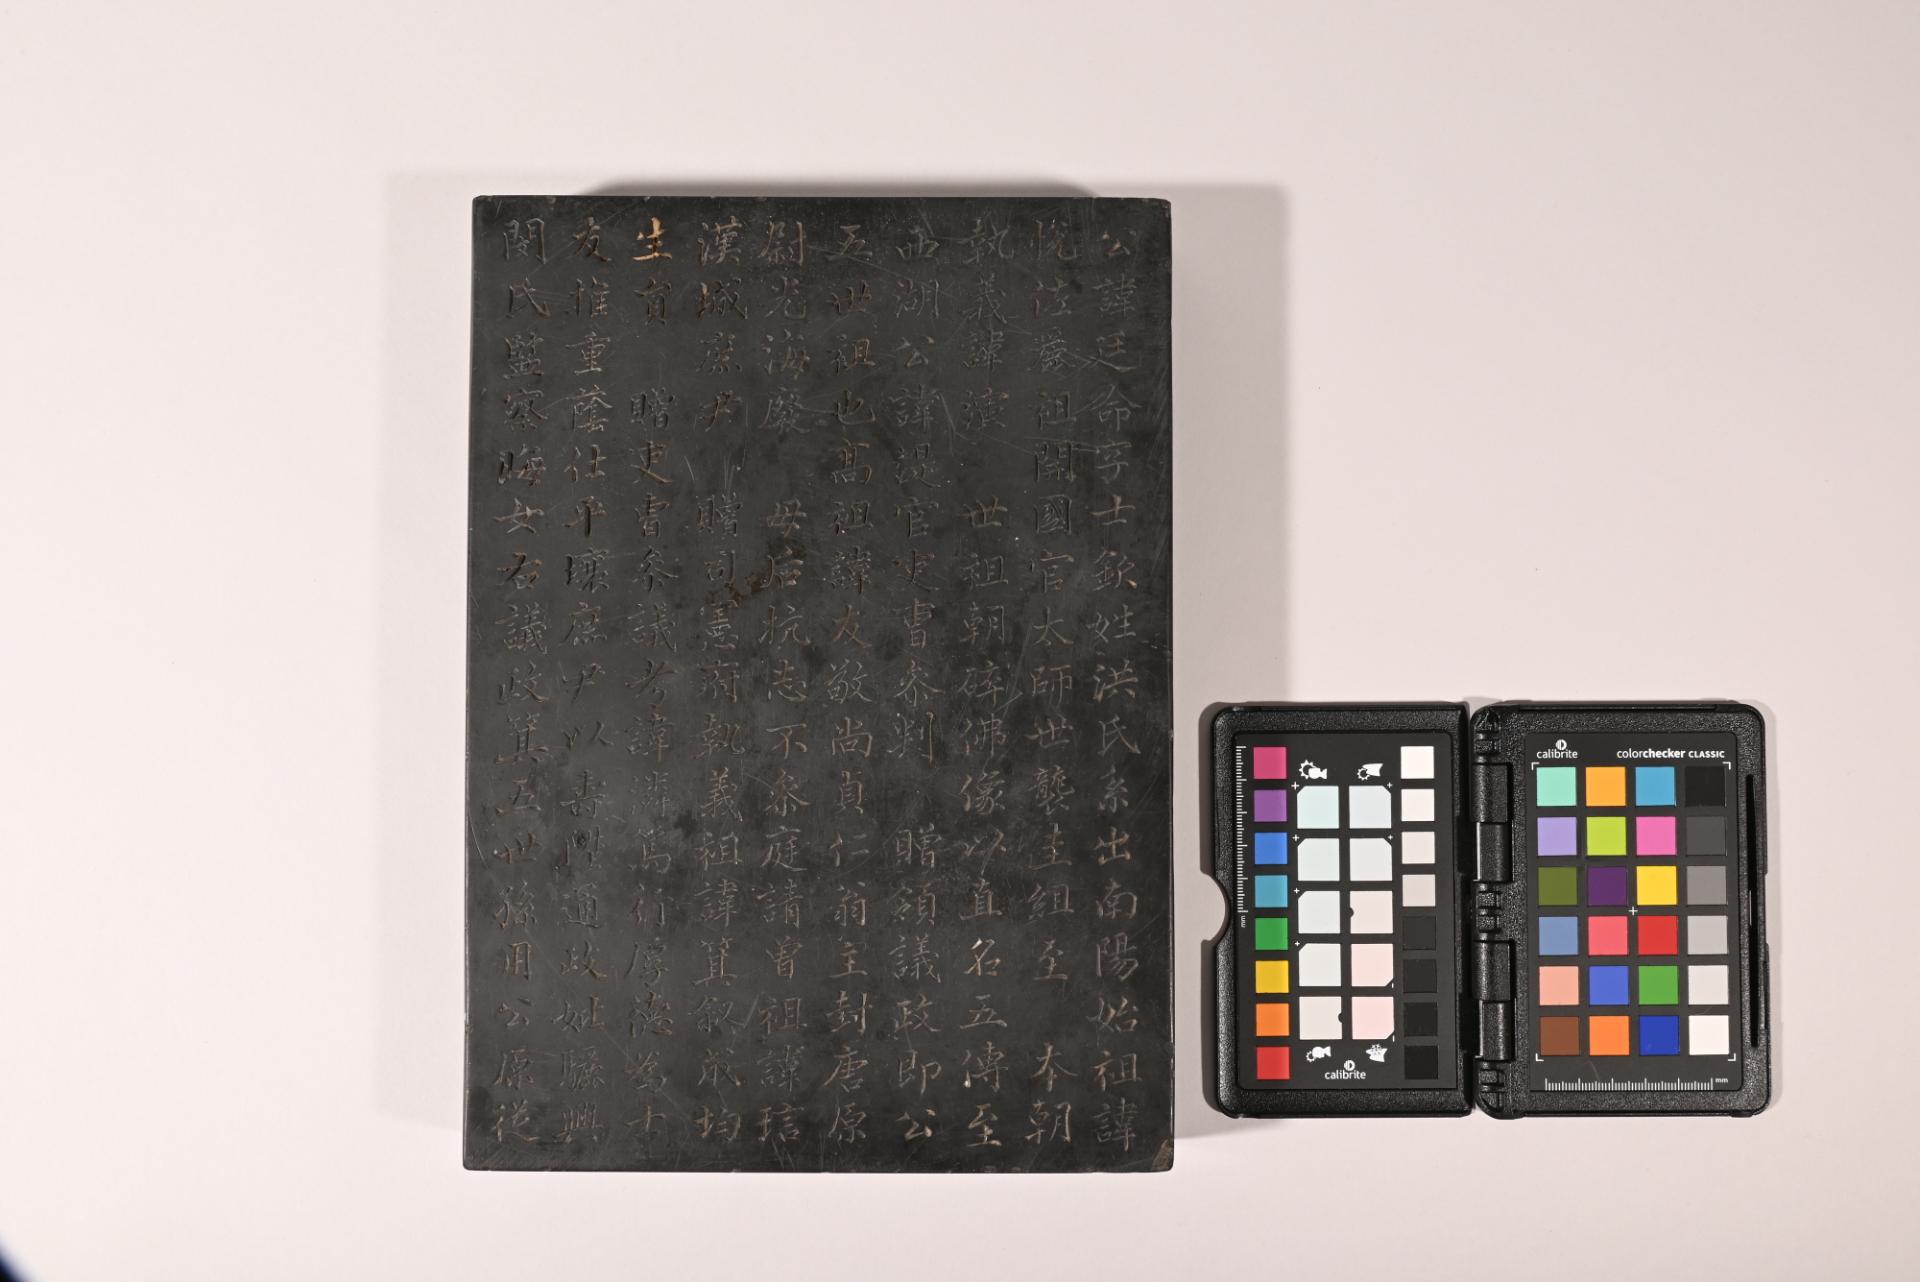 公諱廷命字士欽姓洪氏系出南陽始祖諱
悅佐麗祖開國官太師世襲圭組至 本朝
執義諱演 世祖朝碎佛像以直名五傳至
西湖公諱湜官吏曹參判 贈領議政即公
五世祖也高祖諱友敬尚貞仁翁主封唐原
尉光海廢 母后抗志不參庭請曾祖諱
漢城庶尹 贈司憲府執義祖諱箕敘成均
生員 贈吏曹參議考諱 篤行厚德爲士
友推重蔭仕平壤庶尹以壽陞通政妣驪興
閔氏監察晦女右議政箕五世孫用公原從
calibrite
calibrite
colorchecker CLASSIC
mm
mm